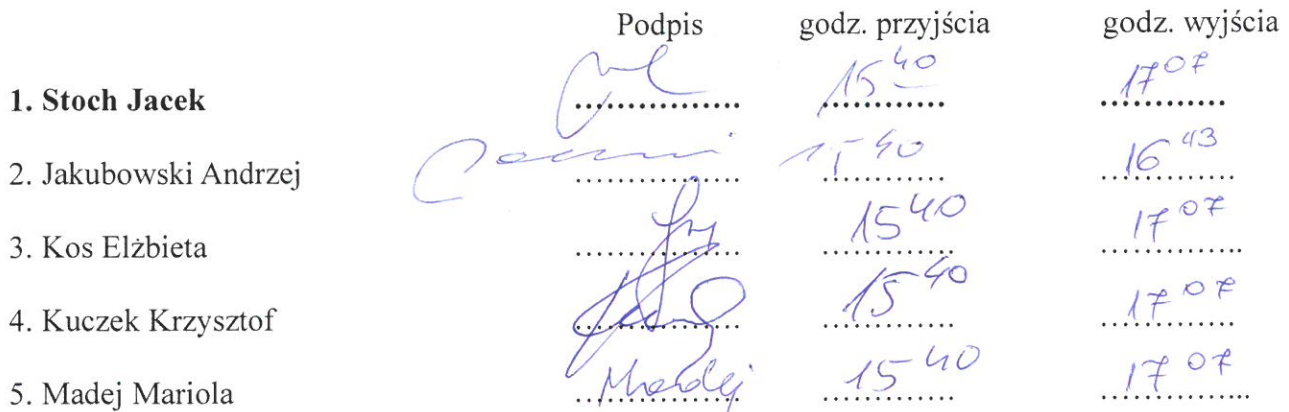 Podpis godz. przyjścia godz. wyjścia
1. Stoch Jacek .............. 15 40 17 07
2. Jakubowski Andrzej .............. 15 40 16 43
3. Kos Elżbieta .............. 15 40 17 07
4. Kuczek Krzysztof .............. 15 40 17 07
5. Madej Mariola Madej 15 40 17 07